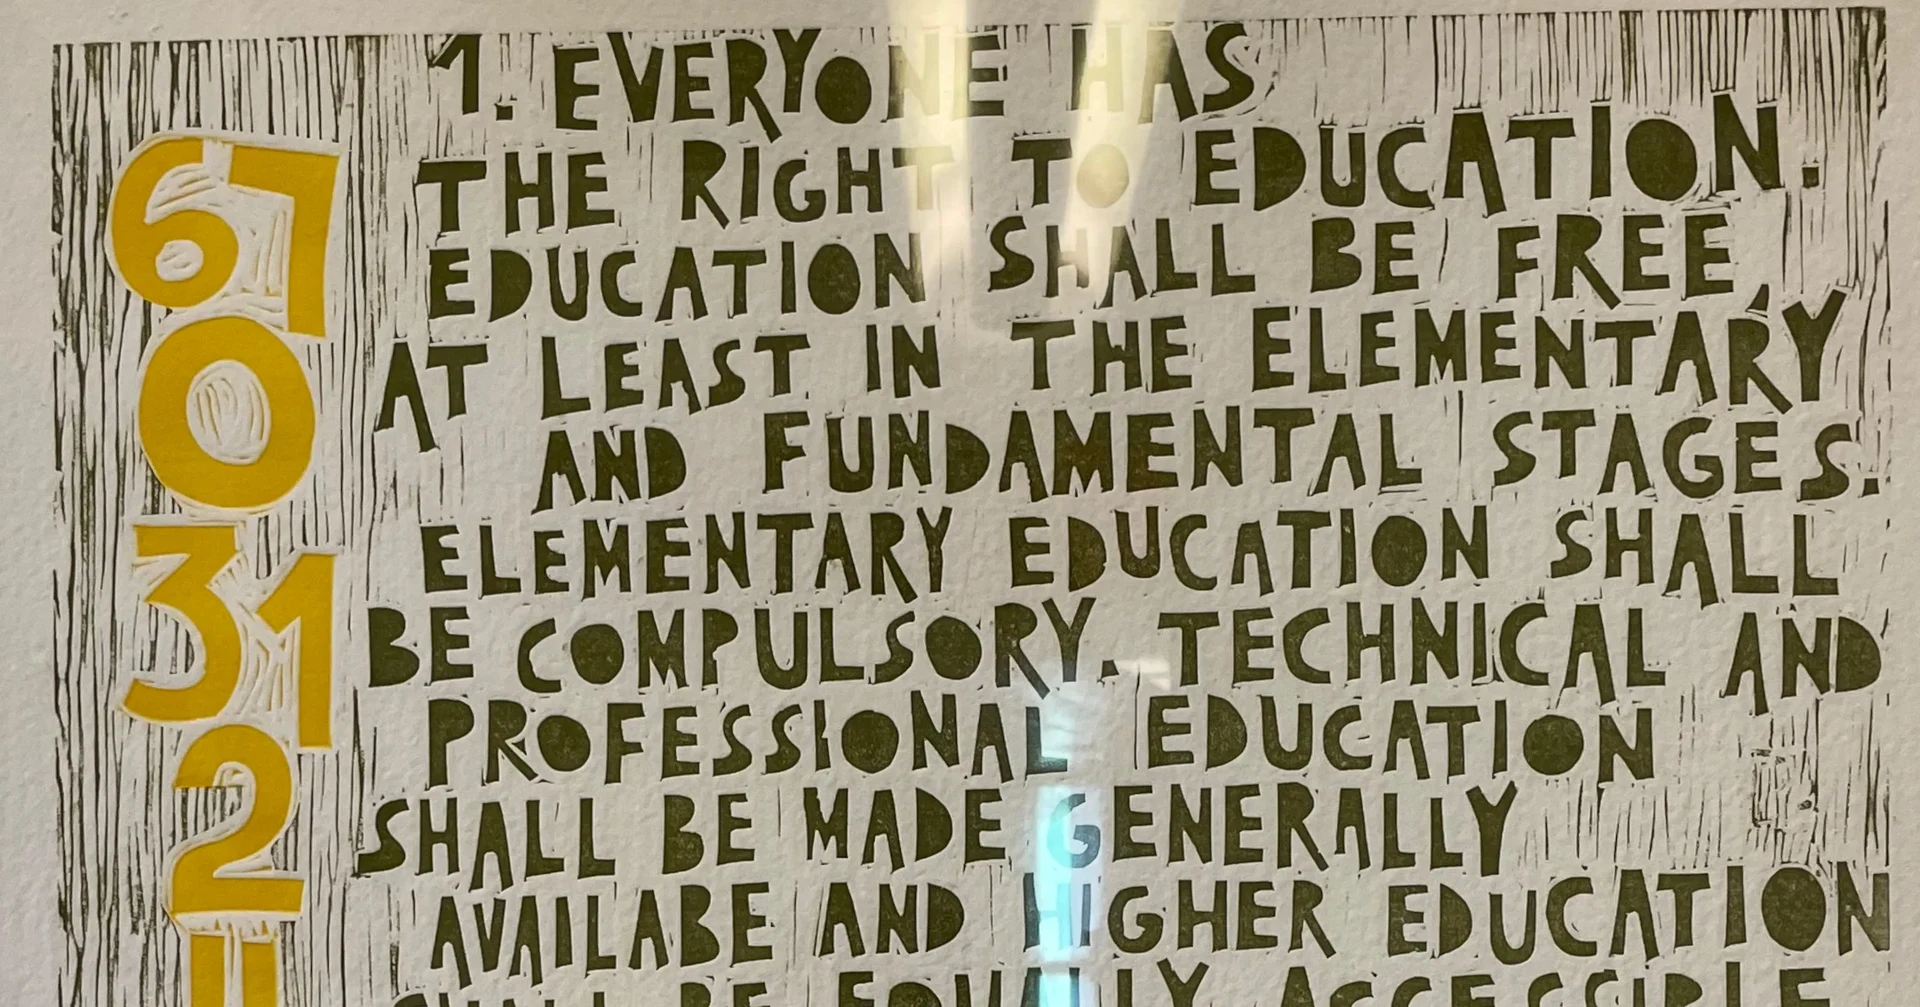 1. EVERYONE HAS
THE RIGHT TO EDUCATION.
EDUCATION SHALL BE FREE,
AT LEAST IN THE ELEMENTARY
AND FUNDAMENTAL STAGES.
ELEMENTARY EDUCATION SHALL
BE COMPULSORY. TECHNICAL AND
PROFESSIONAL EDUCATION
SHALL BE MADE GENERALLY
AVAILABE AND HIGHER EDUCATION
SHALL BE EQUALLY ACCESSIBLE
67
0
31
2